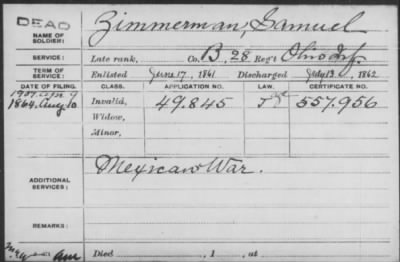 DEAD
NAME OF SOLDIER: Zimmerman, Samuel
SERVICE: Late rank, Co. B, 28 Reg't Ohio Inf.
TERM OF SERVICE: Enlisted June 17, 1861 Discharged July 13, 1862
DATE OF FILING. CLASS. APPLICATION NO. LAW. CERTIFICATE NO.
1907. Apr 9
1864. Aug 10 Invalid, 49.845 557.956
Widow,
Minor,
ADDITIONAL SERVICES: Mexican War.
REMARKS:
Died , 1 , at